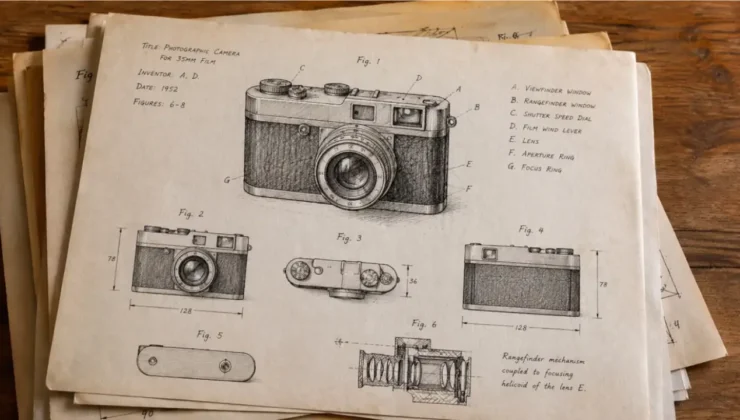 TITLE: PHOTOGRAPHIC CAMERA
FOR 35MM FILM
INVENTOR: A. D.
DATE: 1952
FIGURES: 6-8
Fig. 1
C
D
A
B
E
F
G
A. VIEWFINDER WINDOW
B. RANGEFINDER WINDOW
C. SHUTTER SPEED DIAL
D. FILM WIND LEVER
E. LENS
F. APERTURE RING
G. FOCUS RING
Fig. 2
78
128
Fig. 3
36
Fig. 4
78
128
Fig. 5
Fig. 6
Rangefinder mechanism
coupled to focusing
helicoid of the lens E.
Fig
90